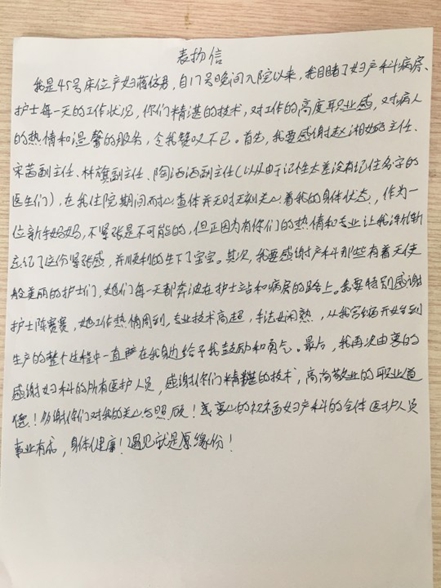 表扬信
我是45号床位产妇蒋佼男，自17号晚间入院以来，我目睹了妇产科病房、
护士每一天的工作状况，你们精湛的技术，对工作的高度职业感，对病人
的热情和温馨的服务，令我赞叹不已。首先，我要感谢赵湘婉主任、
宋茜副主任、林旗副主任、陶洒洒副主任（以及由于记性太差没有记住名字的
医生们），在我住院期间耐心查体并无时无刻关心着我的身体状态，作为一
位新手妈妈，不紧张是不可能的，但正因为有你们的热情和专业让我渐渐
忘记了这份紧张感，并顺利的生下了宝宝。其次，我要感谢产科那些有着天使
般美丽的护士们，她们每一天都奔波在护士站和病房的路上。我要特别感谢
护士陈赛赛，她工作热情周到，专业技术高超，手法娴熟，从我宫缩开始到
生产的整个过程中一直陪在我身边给予我鼓励和勇气。最后，我再次由衷的
感谢妇科的所有医护人员，感谢你们精湛的技术，高尚敬业的职业道
德！感谢你们对我的关心与照顾！我衷心的祝福妇产科的全体医护人员
事业有成，身体健康！遇见就是缘份！